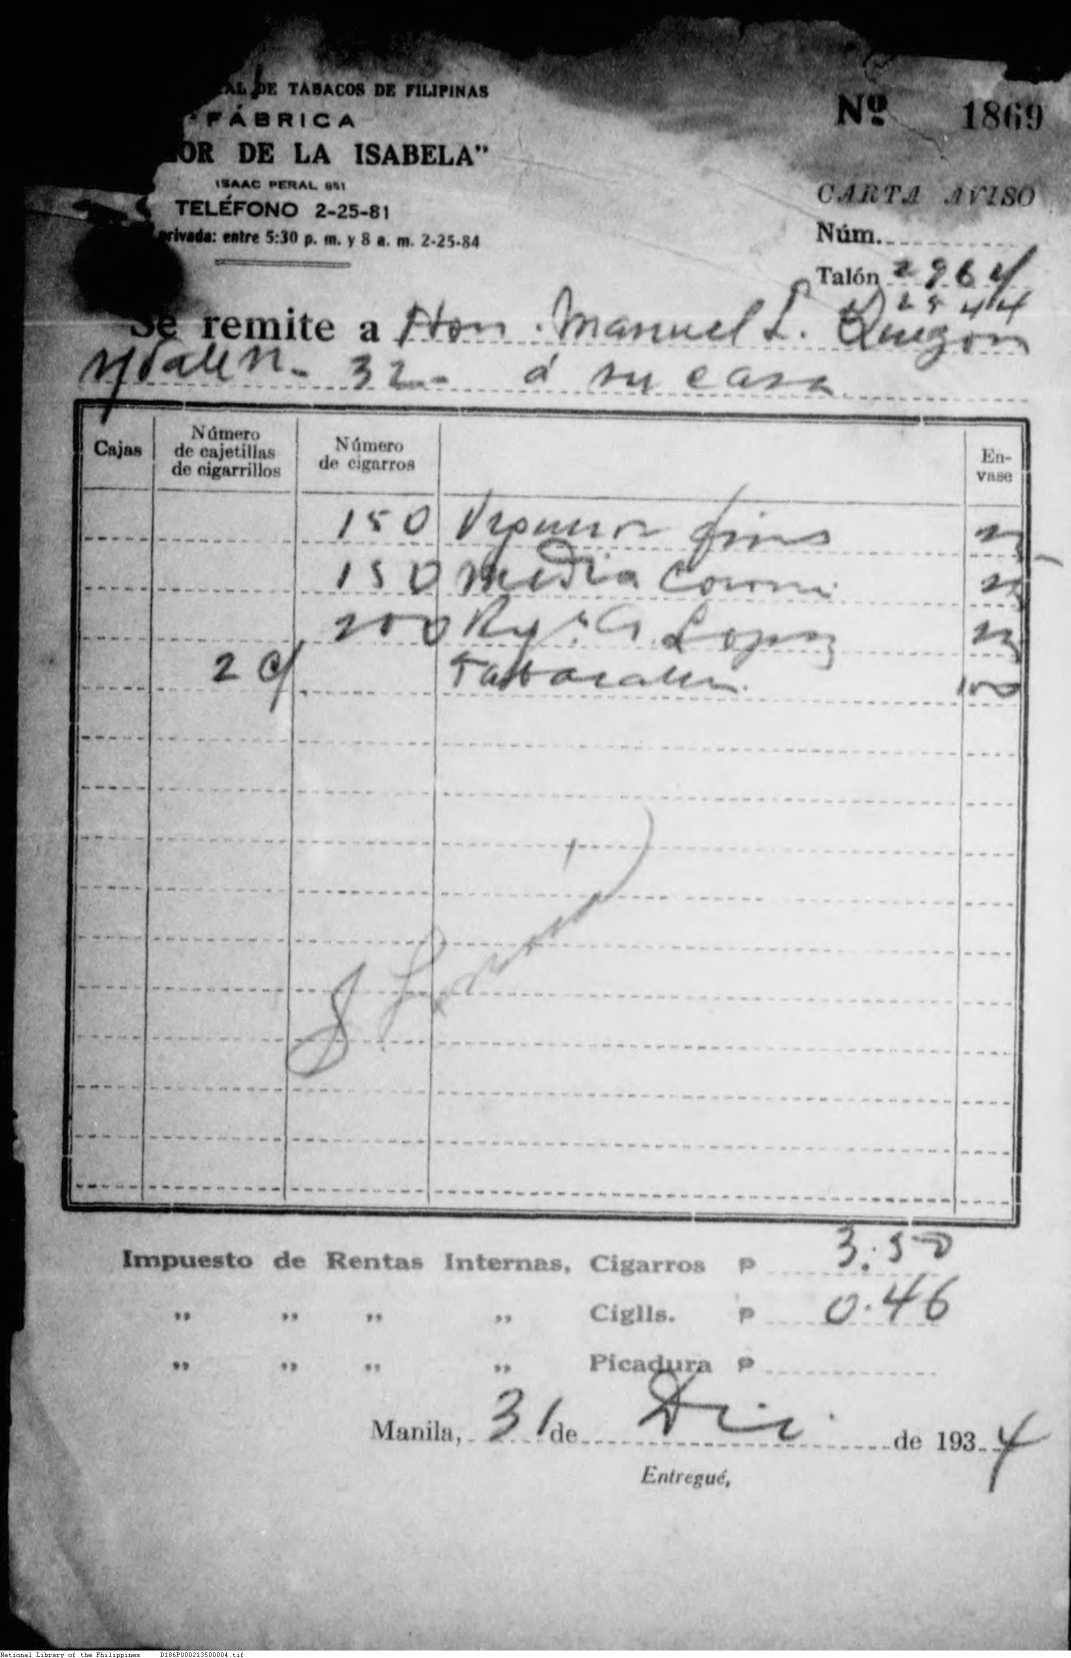 DE TABACOS DE FILIPINAS
FÁBRICA
DE LA ISABELA"
ISAAC PERAL 851
TELÉFONO 2-25-81
privada: entre 5:30 p. m. y 8 a. m. 2-25-84
Nº 1869
CARTA AVISO
Núm.
Talón 2964
2944
Se remite a Hon. Manuel L. Quezon
32- á su casa
Cajas
Número de cajetillas de cigarrillos
Número de cigarros
En-vase
150 finos
150 Media Corona
200 Lopez
2 c/ Tabacalera 100
Impuesto de Rentas Internas, Cigarros ₱ 3.50
" " " " Ciglls. ₱ 0.46
" " " " Picadura ₱
Manila, 31 de Dic. de 1934
Entregué,
National Library of the Philippines D186P000213500004.tif